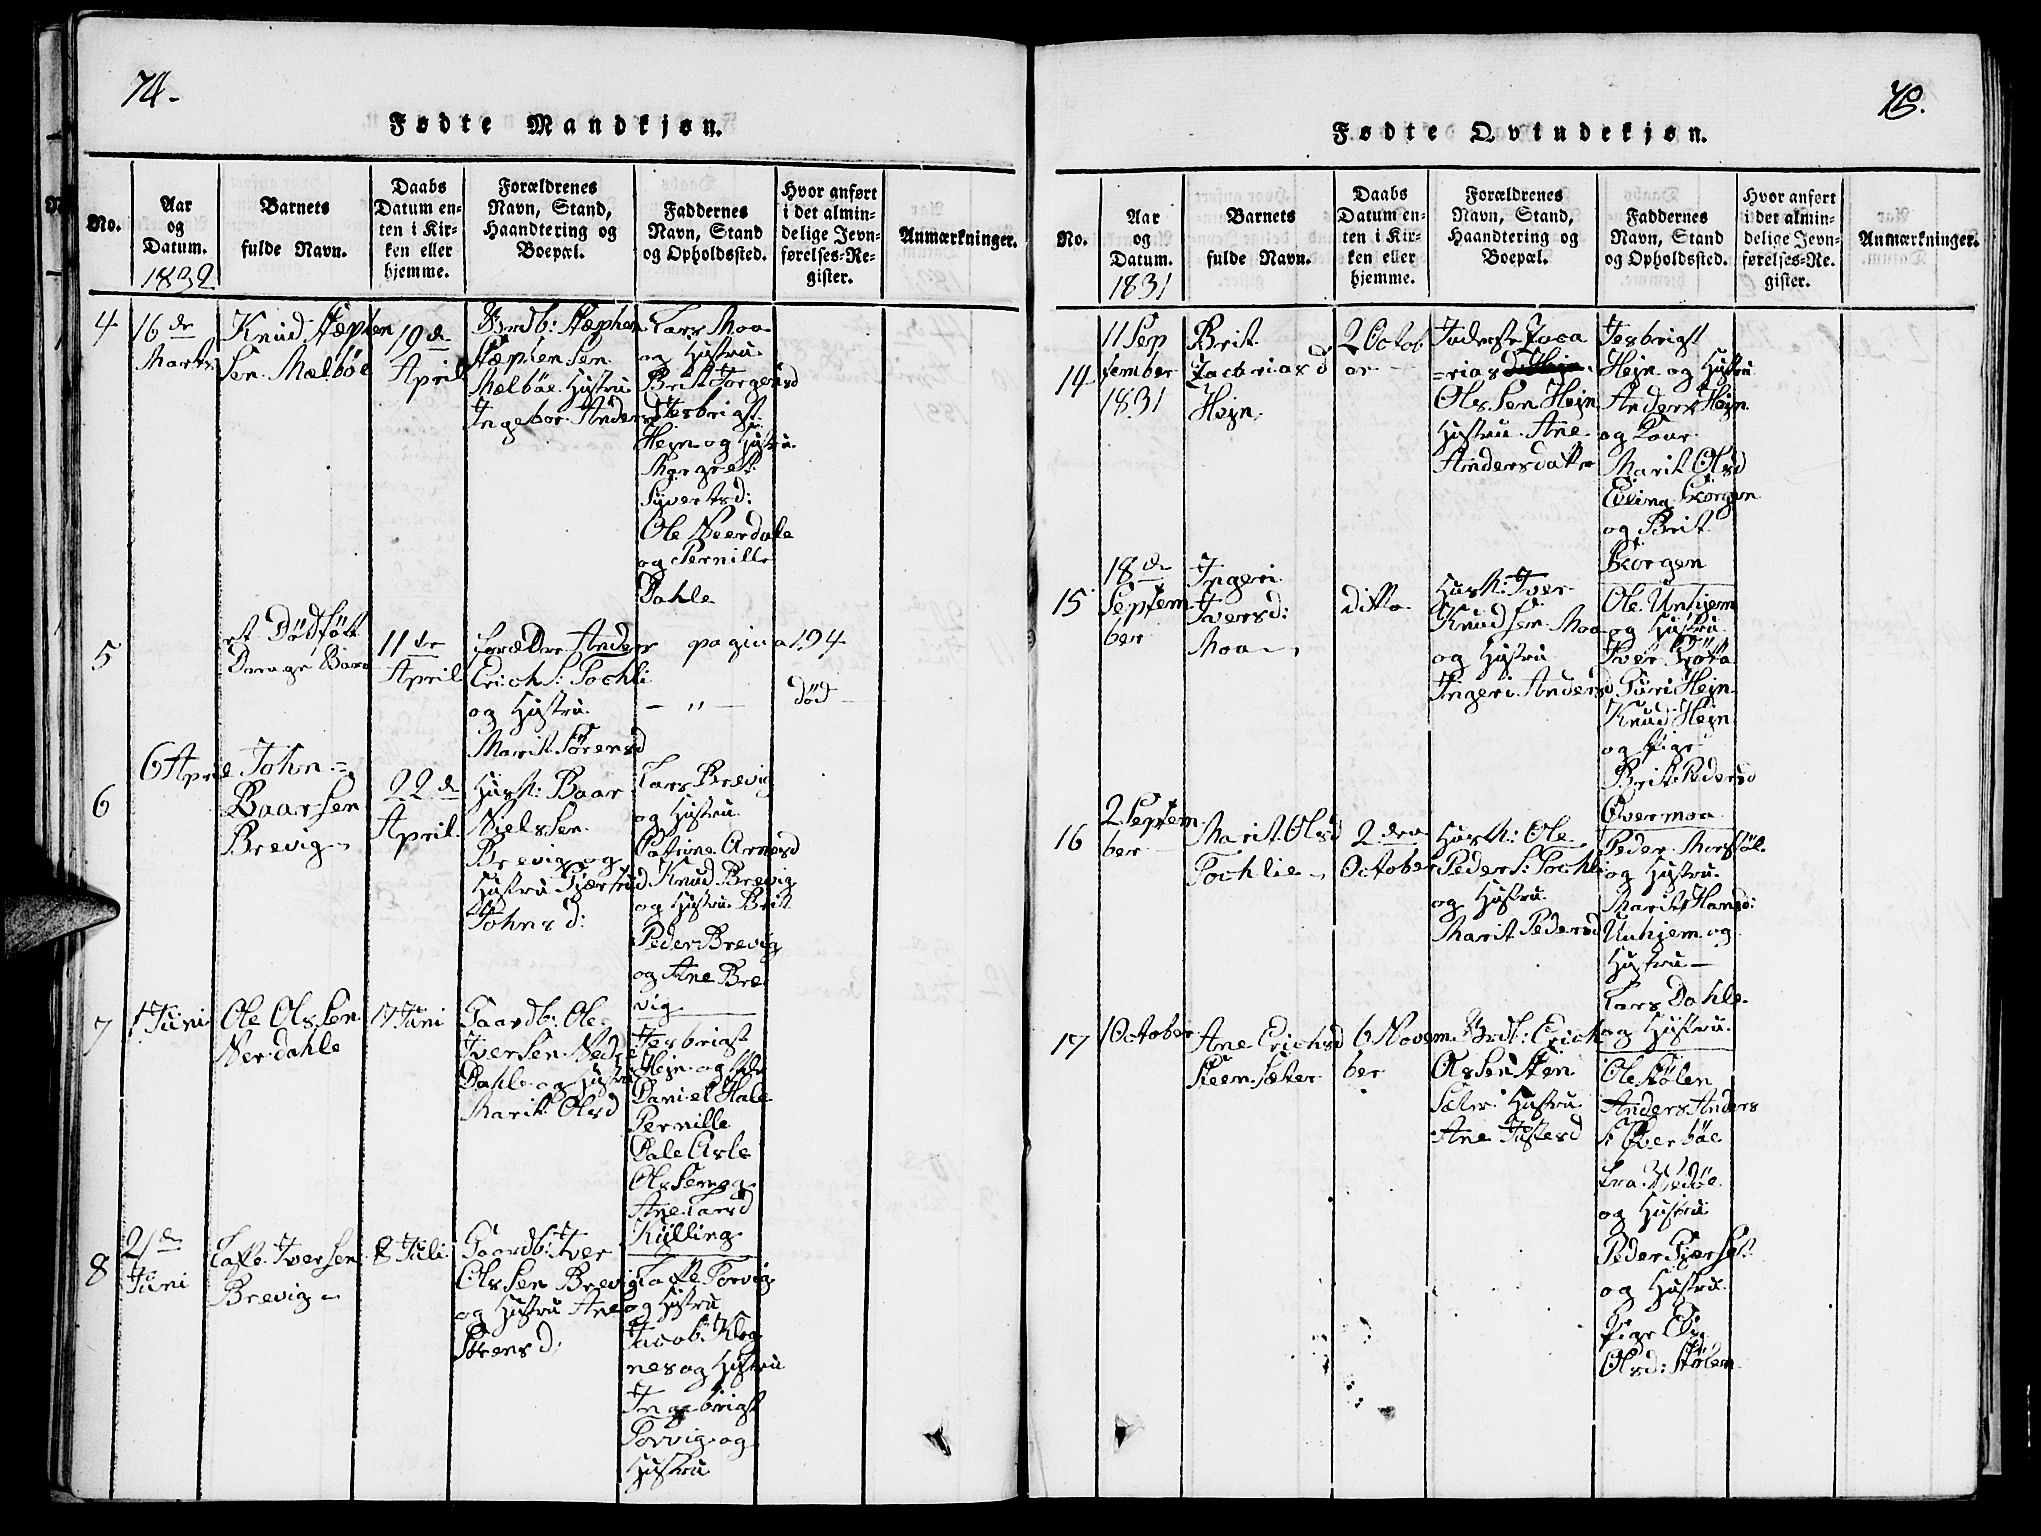 74.
Fødte Mandkjøn.
No.
Aar
og
Datum.
1832
Barnets
fulde Navn.
Daabs
Datum en-
ten i Kir-
ken eller
hjemme.
Forældrenes
Navn, Stand,
Haandtering og
Boepæl.
Faddernes
Navn, Stand
og Opholdssted.
Hvor anført
i det almin-
delige Jevn-
førelses-Re-
gister.
Anmærkninger.
4
16de
Marts
Knud Stæphen
Sen Mælbøe
19de
April
Stæphen
Stæphen Sen
Mælbøe Hustru
Ingebor Anders
Lars Moa
og Hustru
Brit Jorgensd
Hejn og Hustru
Margret
Syvertsd:
Ole Neerdale
og Pernille
Dahle
5
et Dödföt
Drenge Barn
11te
April
forældre Anders
Erich S: Tochli
og Hustru
Marit Sörensd
pagina 194
— " —
död
6
6 April
John
Baarsen
Brevig
22de
April.
Husm: Baar
Nielssen
Brevig og
Hustru Giærtrud
Johnsd:
Lars Brevig
og Hustru
Catrine Arnesd
Knud Brevig
og Hustru Brit
Peder Brevig
og Ane Bre
vig
7
1 Juni
Ole Olssen
Nerdahle
17 Juni
Gaardb: Ole
Iversen Nedre
Dahle og Hustru
Marit Olsd
Hejn og
Daniel Hale
Pernille
Dale Asle
Olssen og
Ane Larsd
Külling
8
21de
Juni
Laffe Iversen
Brevig
8 Juli
Gaardb: Iver
Olssen Brevig
og Hustru Ane
Sörensd:
Laffe Torvig
og Hustru
Jacob Klog
nes og Hustru
Ingebrigt
Torvig og
Hustru
75.
Fødte Qvindekjøn.
No.
Aar
og
Datum.
1831
Barnets
fulde Navn.
Daabs
Datum en-
ten i Kir-
ken eller
hjemme.
Forældrenes
Navn, Stand,
Haandtering og
Boepæl.
Faddernes
Navn, Stand
og Opholdssted.
Hvor anført
i det almin-
delige Jevn-
førelses-Re-
gister.
Anmærkninger.
14
11 Sep
tember
1831
Brit
Zacriasd
Hejn
2 Octob
er
Olssen Hejn
Hustru Ane
Andersdatter
Hejn og Hustru
Anders Hejn
og
Marit Olsd
Skorgen
og Brit
Skorgen
15
18de
Septem
ber
Ingeri
Iversd:
Moa
ditto
Husm: Iver
Knudsen Moa
og Hustru
Ingeri Andersd
Ole Unhjem
og Hustru
Iver Gröta
Guri Hejn
Knud Hejn
og Pige
Brit Pedersd
Overmoa
16
2 Septem
ber
Marit Olsd
Tochlie
2den
October
Husm: Ole
Peder S: Tochli
og Hustru
Marit Pedersd
Peder Morstöl
og Hustru
Marit Hansd:
Unhjem og
Hustru
Lars Dahle
og Hustru
17
1 October
Ane Erichsd
Steen Sæter
6 Novem
ber
Erich
Olssen Sten
Sæter Hustru
Ane Justesd
Ole Stölen
Anders Anders
S: Överbøe
og Hustru
Peder Giærset
og Hustru
Pige
Olsd: Stölen